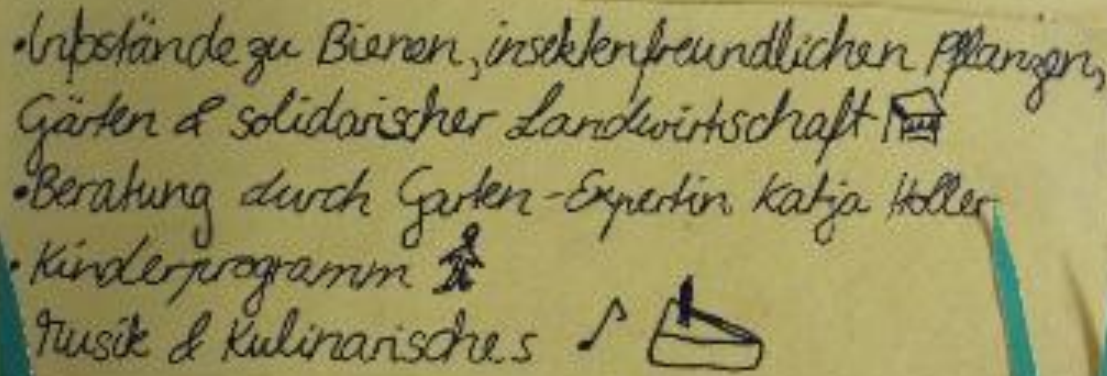 •Infostände zu Bienen, insektenfreundlichen Pflanzen,
Gärten & solidarischer Landwirtschaft
•Beratung durch Garten-Expertin Katja Holler
•Kinderprogramm
Musik & Kulinarisches